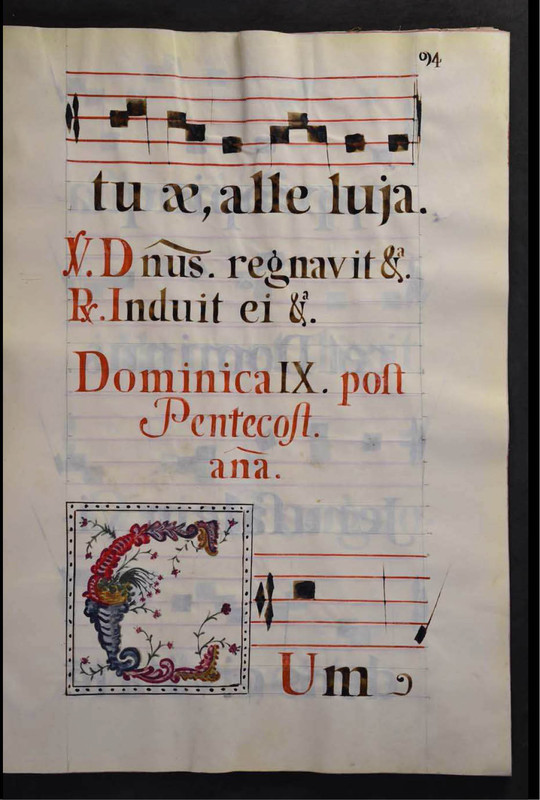 94
tu æ, alle luja.
℣. D nũs. regnavit &ª.
℟. Induit ei &ª.
Dominica IX. poſt
Pentecoſt.
anã.
C Um